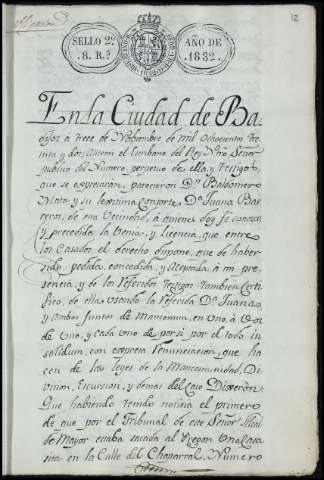 12
SELLO 2º
8. Rs
AÑO DE
1832
En la Ciudad de Ba
dajoz á trece de Noviembre de mil Ochocientos tre
inta y dos, ante mi el Escribano del Rey Ntro Señor
publico del Numero perpetuo de ella, y Testigos
que se espresaran, parecieron Dn Baldomero
Mata, y su lexitima Consorte Dª Juana Bar
cern, de esta Vecindad, á quienes doy fé conozco,
y precedida la Venia, y licencia, que entre
los Casados el derecho dispone, que de haber
sido pedida, concedida, y Aceptada á mi pre
sencia, y de los referidos testigos tambien Certi
fico, de ella usando la referida Dª Juana
y ambos Juntos de Mancomun, en uno, á voz
de uno, y cada uno de por si por el todo in
solidum, con expresa renunciacion, que ha
cen de las Leyes de la Mancomunidad, Di
vision, Excursion, y demas del caso Dixeron:
Que habiendo tenido noticia el primero
de que por el Tribunal de este Señor Alcal
de Mayor estaba sacada al Pregon una Casa
sita en la Calle del Chaparral, Numero